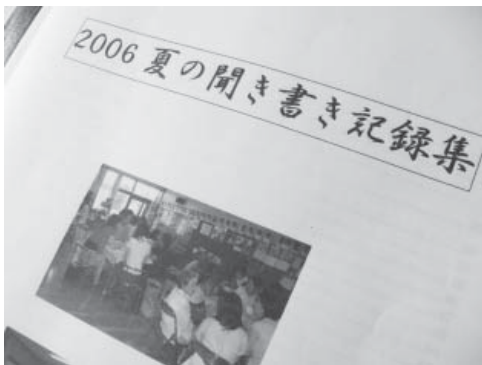 2006 夏の聞き書き記録集